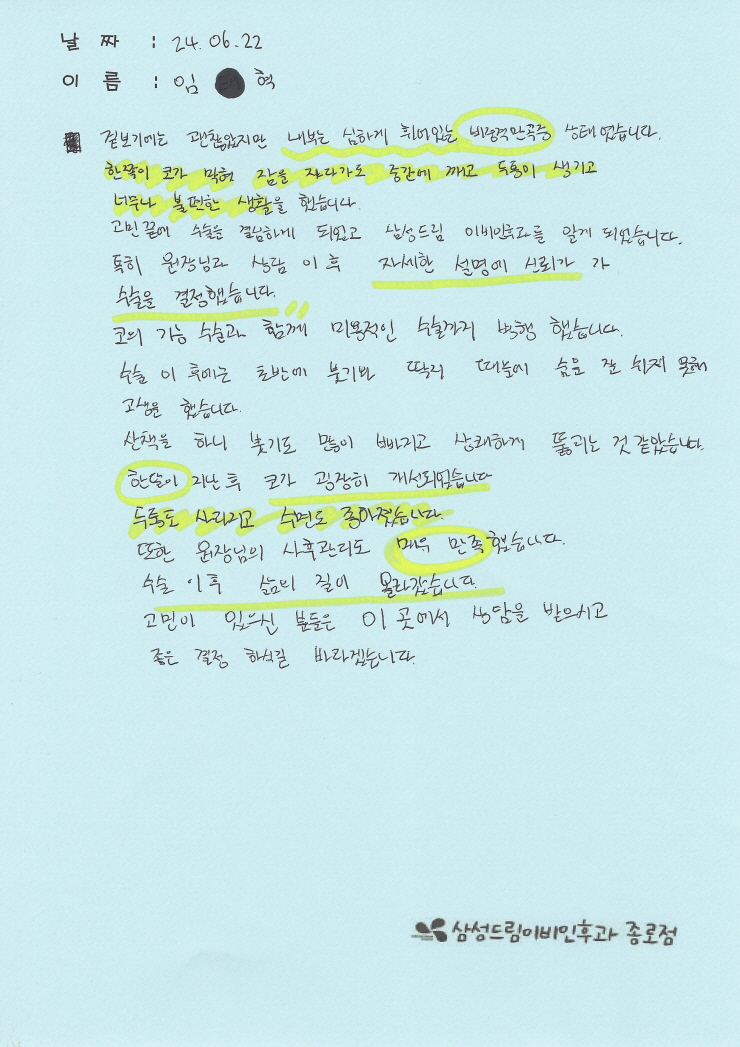 날 짜 : 24. 06. 22
이 름 : 임 혁
겉보기에는 괜찮았지만 내부는 심하게 휘어있는 비중격만곡증 상태였습니다.
한쪽이 코가 막혀 잠을 자다가도 중간에 깨고 두통이 생기고
너무나 불편한 생활을 했습니다.
고민 끝에 수술을 결심하게 되었고 삼성드림 이비인후과를 알게 되었습니다.
특히 원장님과 상담 이 후 자세한 설명에 신뢰가 가
수술을 결정했습니다.
코의 기능 수술과 함께 미용적인 수술까지 병행 했습니다.
수술 이 후에는 초반에 붓기와 딱지 때문에 숨을 잘 쉬지 못해
고생을 했습니다.
산책을 하니 붓기도 많이 빠지고 상쾌하게 뚫리는 것 같았습니다.
한달이 지난 후 코가 굉장히 개선되었습니다
두통도 사라지고 수면도 좋아졌습니다.
또한 원장님의 사후관리도 매우 만족했습니다.
수술 이후 삶의 질이 올라갔습니다.
고민이 있으신 분들은 이 곳에서 상담을 받으시고
좋은 결정 하시길 바라겠습니다.
삼성드림이비인후과 종로점